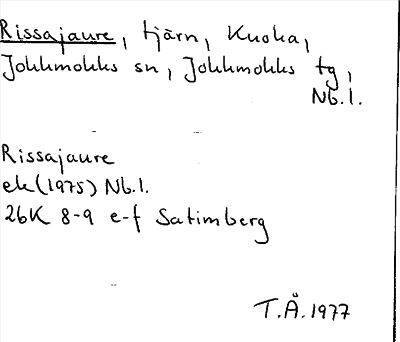 Rissajaure, tjärn, Kuoka,
Jokkmokks sn, Jokkmokks tg,
Nb.l.
Rissajaure
ek (1975) Nb.l.
26K 8-9 e-f Satimberg
T.Å. 1977